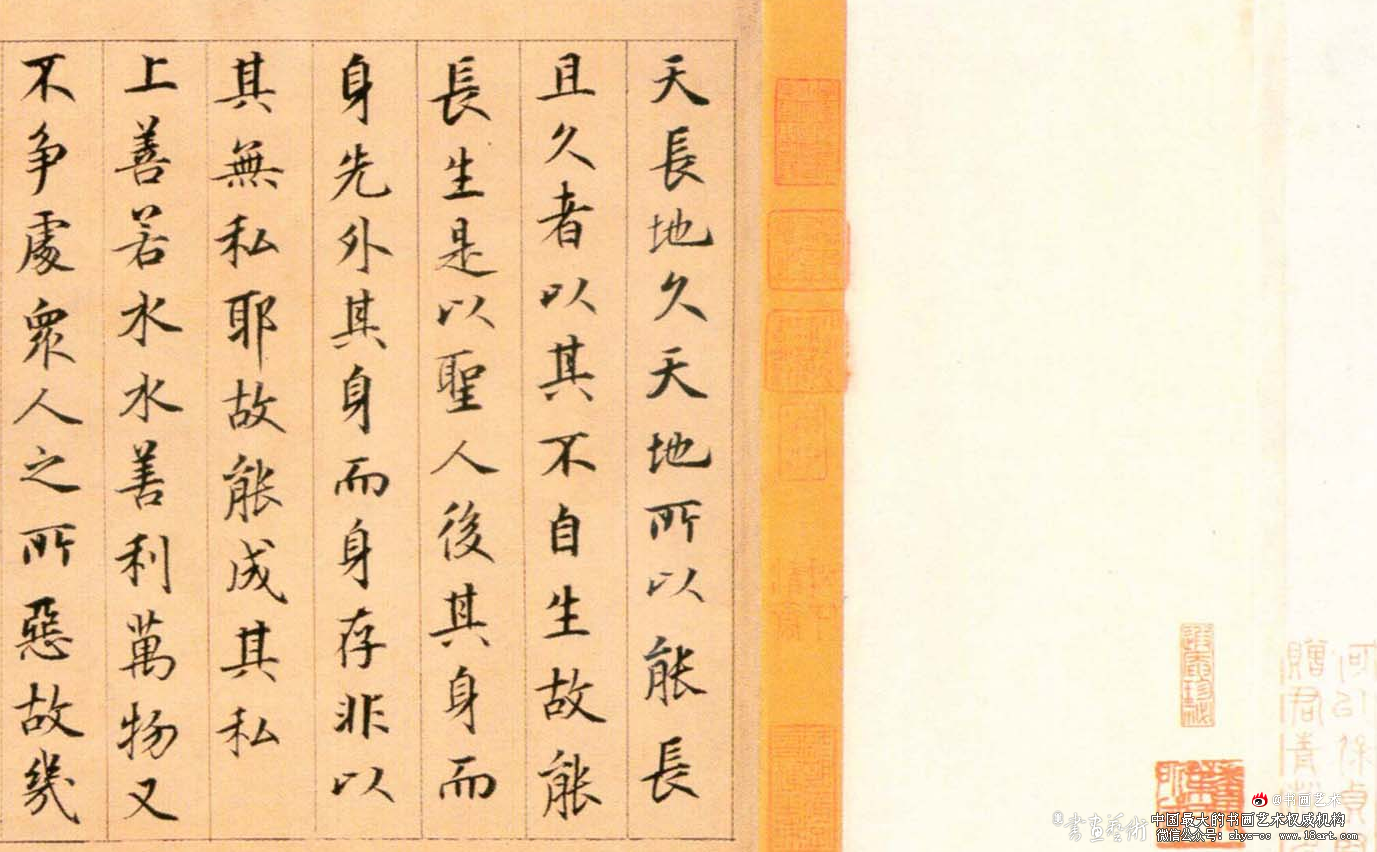 天長地久天地所以能長
且久者以其不自生故能
長生是以聖人後其身而
身先外其身而身存非以
其無私耶故能成其私
上善若水水善利萬物又
不争處衆人之所惡故幾
@书画艺术
書画藝術
中国最大的书画艺术权威机构
微信公众号：shys-cc www.18art.com